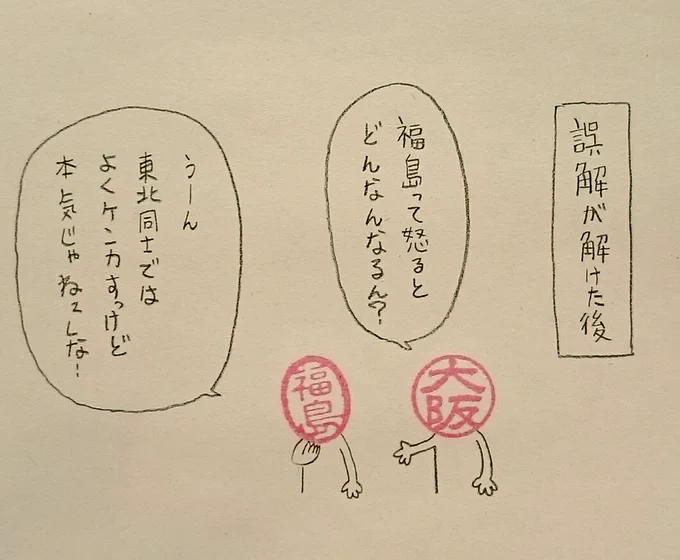 誤解が解けた後
福島って怒ると
どんなんなるん?
うーん
東北同士では
よくケンカすっけど
本気じゃねぇしな!
大阪
福島